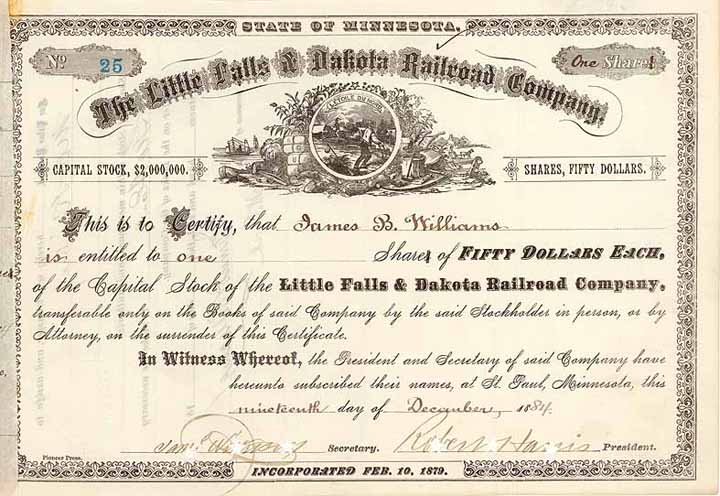 STATE OF MINNESOTA.
No 25
One Share
The Little Falls & Dakota Railroad Company.
L'ETOILE DU NORD
CAPITAL STOCK, $2,000,000.
SHARES, FIFTY DOLLARS.
This is to Certify, that James B. Williams
is entitled to one Share of FIFTY DOLLARS EACH,
of the Capital Stock of the Little Falls & Dakota Railroad Company,
transferable only on the Books of said Company by the said Stockholder in person, or by
Attorney, on the surrender of this Certificate.
In Witness Whereof, the President and Secretary of said Company have
hereunto subscribed their names, at St. Paul, Minnesota, this
nineteenth day of December, 1884.
Secretary. Robert Harris President.
Pioneer Press.
INCORPORATED FEB. 10, 1879.